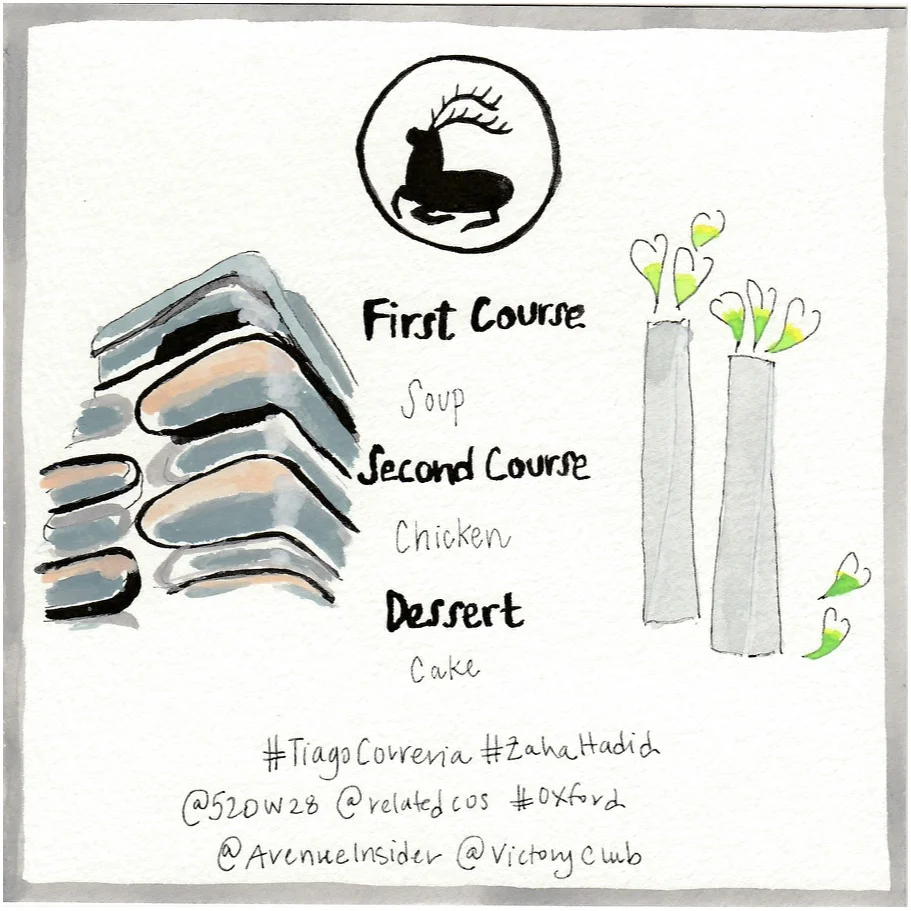 First Course
Soup
Second Course
Chicken
Dessert
Cake
#TiagoCorreria #ZahaHadid
@520W28 @relatedcos #Oxford
@AvenueInsider @VictoryClub